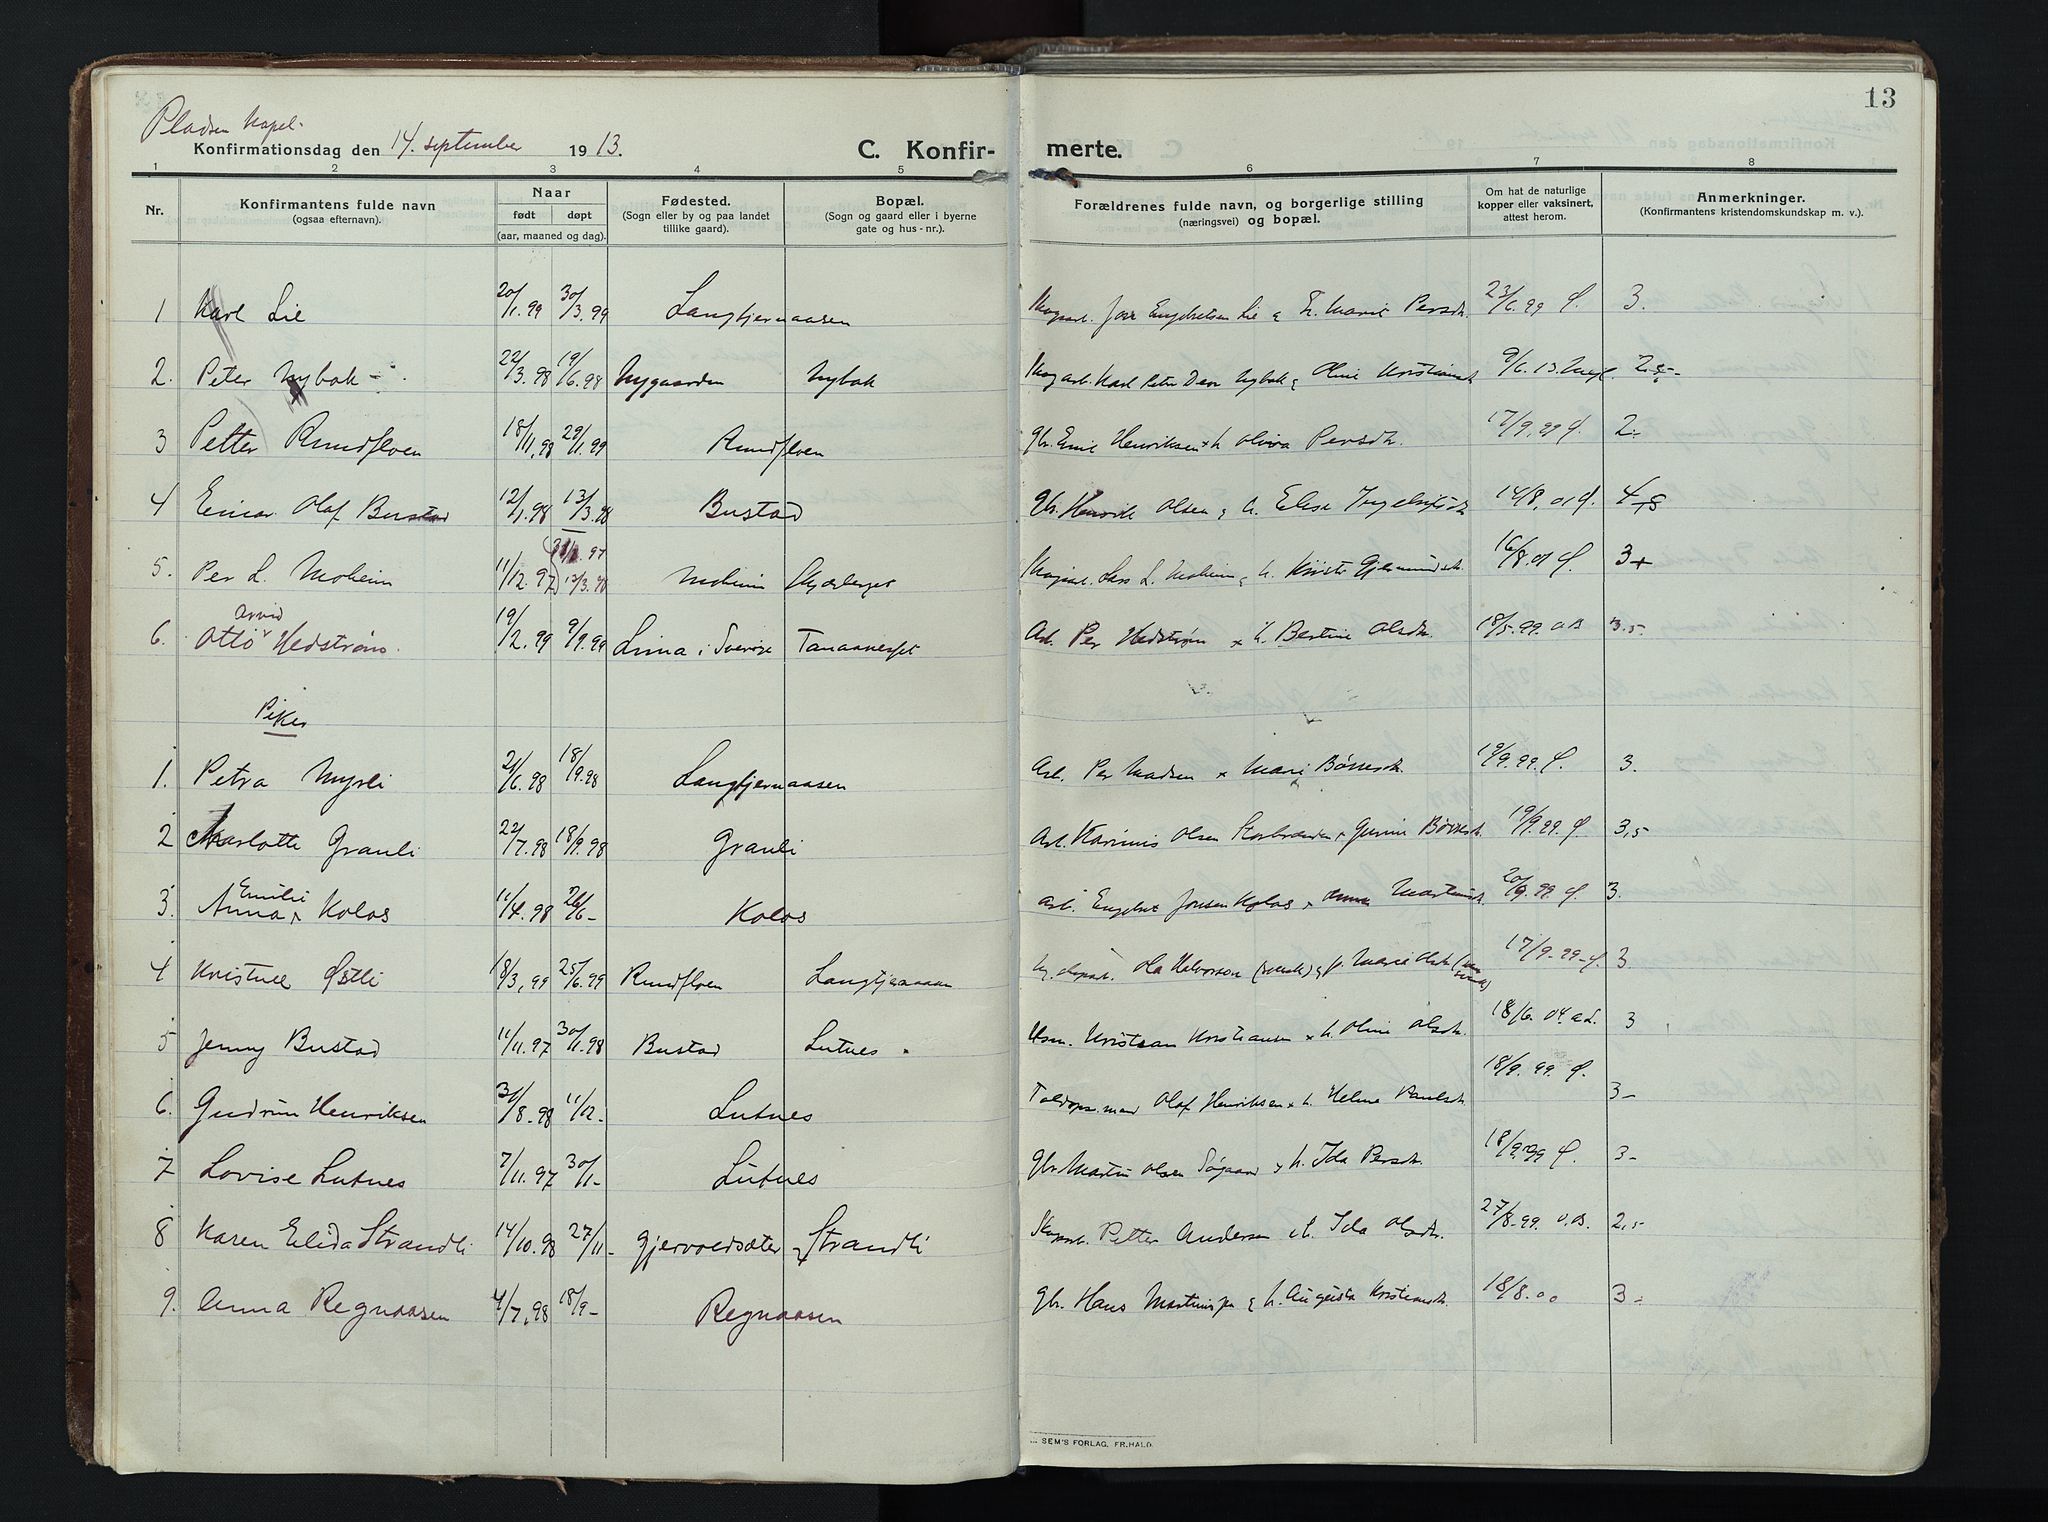 13
Pladsen Kapel.
Konfirmationsdag den 14. september 1913.
C. Konfir- merte.
1 2 3 4 5 6 7 8
Nr.
Konfirmantens fulde navn
(ogsaa efternavn).
Naar
født døpt
(aar, maaned og dag).
Fødested.
(Sogn eller by og paa landet
tillike gaard).
Bopæl.
(Sogn og gaard eller i byerne
gate og hus-nr.).
Forældrenes fulde navn, og borgerlige stilling
(næringsvei) og bopæl.
Om hat de naturlige
kopper eller vaksinert,
attest herom.
Anmerkninger.
(Konfirmantens kristendomskundskap m. v.).
1 Karl Lie 20/1.99 30/3.99 Langtjernaasen Engebretsen Lie & h. Marie Persdt. 23/6.99 3.
2. Peter Nybak 22/3.98 19/6.98 Nygaarden Nybak Karl Peter Nybak & Oline Kristiansdt. 9/6.13
3 Petter Rundfloen 18/11.98 29/1.99 Rundfloen gbr. Emil Henriksen x h. Olivia Persdt. 17/9.99 2-
4 Einar Olaf Bustad 12/1.98 13/3.98 Bustad gbr. Olsen & h. Elise 14/8.01
5. Per L. Moheim 11/12.97 13/3.98 Moheim Skjærberget Lars L. Moheim & h. Gjermundsdt. 16/8.01 3+
6. Otto Arvid Hedstrøm. 19/2.99 9/9.99 Lima i Sverige Tanaanesset Arb. Per Hedstrøm x h. Bertine Olsdt. 18/5.99. 3.5.
Piker
1. Petra Myrli 21/6.98 18/9.98 Langtjernaasen Arb. Per Madsen x Mari Børresdt. 19/9.99. 3.
2 Charlotte Granli 22/7.98 18/9.98 Granli Arb. Olsen & Gunine Børresdt. 19/9.99. 3,5
3. Anna Emilie Kolos 11/4.98 26/6- Kolos Arb. Engebret Jonsen Kolos x Anna Martinsdt. 20/9.99. 3.
4 Kristine Østli 18/3.99 25/6.99 Rundfloen Langtjernaasen Ola Halvorson (svensk) & Marie Olsdt. 17/9.99 3.
5 Jenny Bustad 11/11.97 30/1.98 Bustad Lutnes Kristian Kristiansen x h. Oline Olsdt. 18/6.04. 3
6. Gudrun Henriksen 31/8.98 11/12- Lutnes Toldops.mand Olaf Henriksen x h. Helene Paulsdt. 18/9.99. 3-
7 Lovise Lutnes 7/11.97 30/1- Lutnes gbr. Martin Olsen Søgaard & h. Ida Persdt. 18/9.99 3-
8 Karen Elida Strandli 14/10.98 27/11- Gjervoldsæter Strandli Petter Andersen & h. Ida Olsdt. 27/8.99. 2,5
9. Anna Regnaasen 4/7.98 18/9- Regnaasen gbr. Hans & h. Augusta Kristiansdt. 18/8.00 3-
SEM'S FORLAG, FR.HALD.